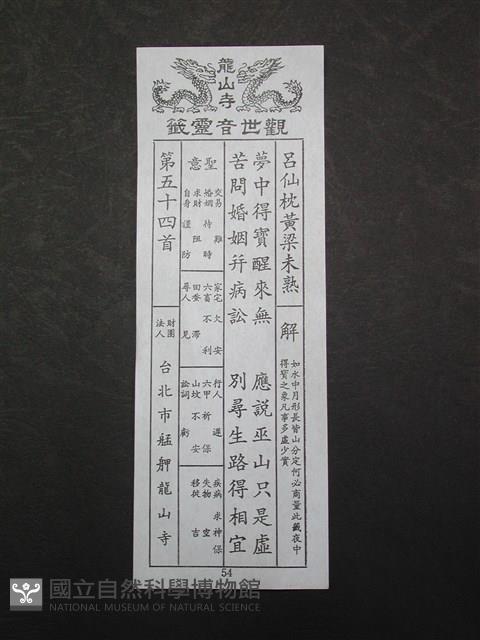 龍山寺
觀世音靈籤
呂仙枕黃梁未熟
解
如水中月形長皆山分定何必商量此籤夜中
得寶之象凡事多虛少實
夢中得寶醒來無 應說巫山只是虛
苦問婚姻并病訟 別尋生路得相宜
聖意
交易 難
婚姻 待時
求財 阻
自身 謹防
家宅 欠安
六畜 不利
田蚕 滯
尋人 見
行人 遲
六甲 祈保
山坟 不安
訟詞 虧
疾病 求神保
失物 空
移徙 吉
第五十四首
財團
法人
台北市艋舺龍山寺
54
國立自然科學博物館
NATIONAL MUSEUM OF NATURAL SCIENCE